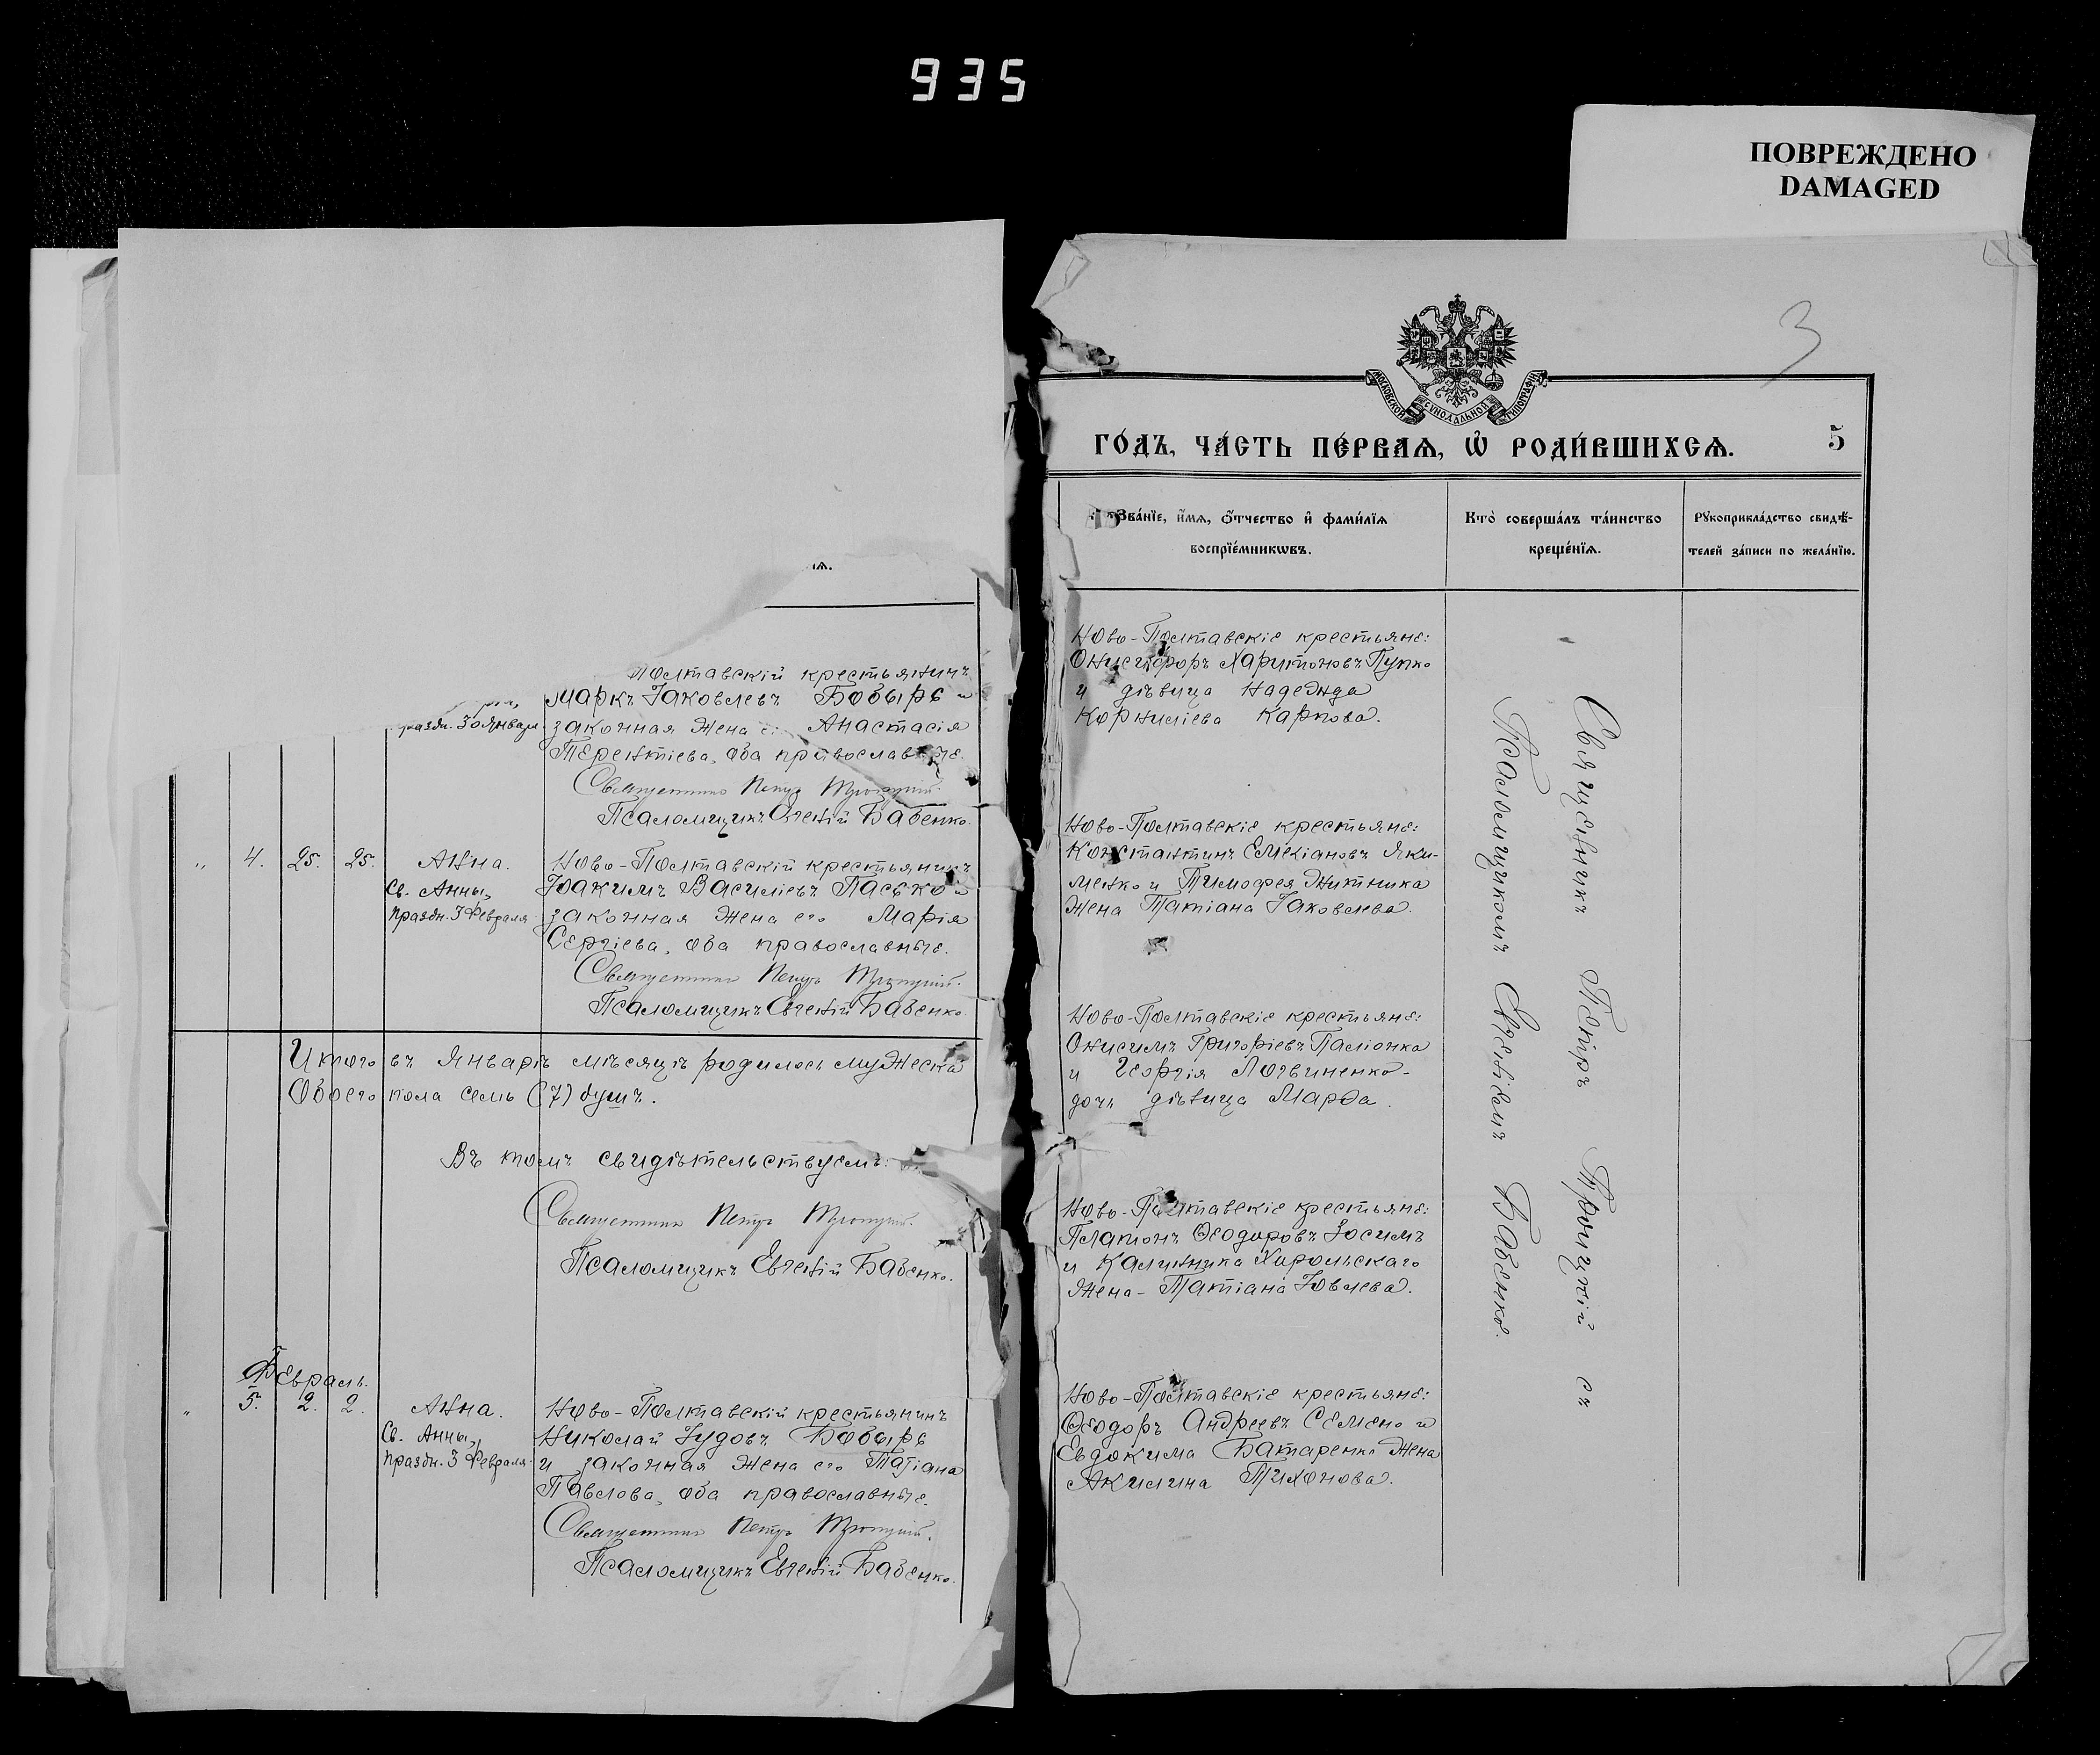 935
ПОВРЕЖДЕНО
DAMAGED
ѧ.
Полтавскій крестьянинъ
Маркъ Іаковлевъ Бобырь и
праздн. 30 Января.
законная жена его Анастасія
Терентіева, оба православные.
Священникъ Петръ Троицкій.
Псаломщикъ Евгеній Бабенко.
" 4. 25. 25. Анна.
Св. Анны,
праздн. 3 Февраля
Ново-Полтавскій крестьянинъ
Іоакимъ Василіевъ Пасько и
законная жена его Марія
Сергіева, оба православные.
Священникъ Петръ Троицкій.
Псаломщикъ Евгеній Бабенко.
Итого въ Январѣ мѣсяцѣ родилось мужеска
обоего пола семь (7) душъ.
Въ томъ свидѣтельствуемъ:
Священникъ Петръ Троицкій.
Псаломщикъ Евгеній Бабенко.
Февраль.
" 5. 2. 2. Анна.
Св. Анны,
праздн. 3 Февраля
Ново-Полтавскій крестьянинъ
Николай Іудовъ Бобырь
и законная жена его Татіана
Павлова, оба православные.
Священникъ Петръ Троицкій.
Псаломщикъ Евгеній Бабенко.
3
МОСКОВСКОЙ СѴНОДАЛЬНОЙ ТИПОГРАФІИ
ГО́ДЪ, ЧА́СТЬ ПЕ́РВАѦ, Ѽ РОДИ́ВШИХСѦ.
5
Зва́нїе, и҆́мѧ, ѻ҆́тчество и҆ фами́лїѧ
воспрїе́мникѡвъ.
Кто̀ соверша́лъ та́инство
креще́нїѧ.
Рꙋкоприкла́дство свидѣ́-
телей за́писи по жела́нїю.
Ново-Полтавскіе крестьяне:
Онисифоръ Харитоновъ Пупко
и дѣвица Надежда
Корниліева Карпова.
Ново-Полтавскіе крестьяне:
Константинъ Емеліановъ Яки-
менко и Тимофея Житника
жена Татіана Іаковлева.
Ново-Полтавскіе крестьяне:
Онисимъ Григоріевъ Паліонка
и Георгія Логвиненко-
дочь дѣвица Марѳа.
Ново-Полтавскіе крестьяне:
Платонъ Ѳеодоровъ Зосимъ
и Калинника Хорольскаго
жена- Татіана Іовлева.
Ново-Полтавскіе крестьяне:
Ѳеодоръ Андреевъ Семено и
Евдокима Батаренко жена
Акилина Тихонова.
Священникъ Петръ Троицкій съ
Псаломщикомъ Евгеніемъ Бабенко.